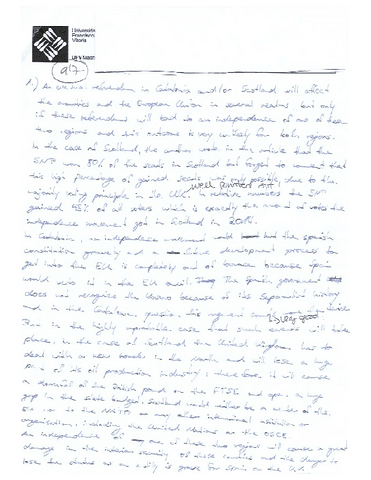 Universidad
Francisco
Vitoria
UFV Madrid
9'7
1.) An eventual referendum in Catalonia and/or Scotland will affect
the countries and the European Union in several realms but only
if these referendums will lead to an independence of one of these
two regions and this outcome is very unlikely for both regions.
In the case of Scotland, the author wrote in the article that the
SNP won 80% of the seats in Scotland but forgot to comment that
this high percentage of gained seats was only possible, due to the
well pointed out
majority voting principle in the U.K. In numbers the SNP
gained 55% of all votes which is exactly the amount of votes the
independence movement got in Scotland in 2014.
In Catalonia, an independence movement would but the Spanish
constitution and a future development process to
get into the EU is completely out of because Spain
would veto it in the EU council. The Spanish government
does not recognize the Kosovo because of its separatist history
and in the Catalonian question, this argument
is very good
But in the highly improbable case that such events will take
place, in the case of Scotland the United Kingdom has to
deal with a new border in the north and will lose a huge
part of its oil production industry; therefore it will cause
a of the British pound on the FTSE and open a huge
gap in the state budget. Scotland would neither be a member of the
EU nor in the NATO or any other international institution or
organisation, including the United Nations or the OSCE.
An independence of one of these two region will cause a great
damage in the interior security of these countries and the danger to
lose the status as an entity is grave for Spain or the U.K.